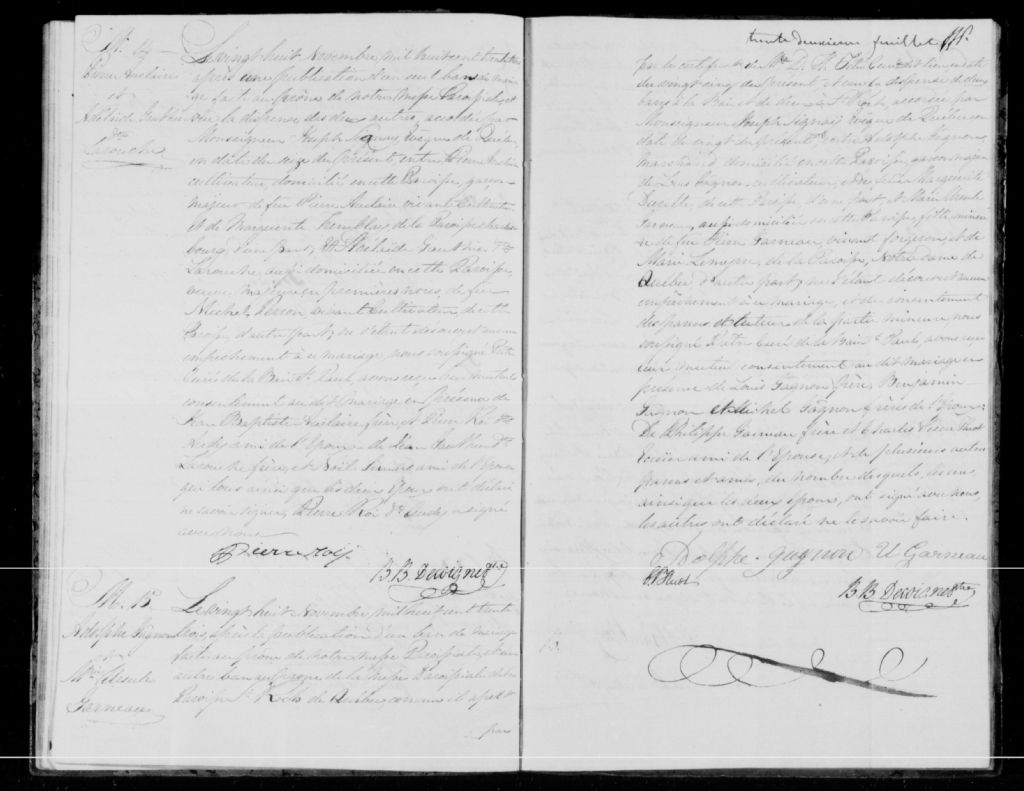 M. 14
Pierre Auclair
et
Adélaïde Gauthier
dte
Larouche
Le vingt huit Novembre mil huit cent trente trois
après une publication d'un seul ban de maria
ge fait au prône de notre messe Paroissiale, et
vu la dispense des deux autres, accordée par
Monseigneur Joseph Signay Evêque de Québec
en date du seize du présent, entre Pierre Auclair
cultivateur, domicilié en cette Paroisse, garçon
majeur de feu Pierre Auclair vivant Cultivateur
et de Marguerite Tremblay, de la Paroisse
bourg, d'une part; Et Adélaide Gauthier dte
Larouche, aussi domiciliée en cette Paroisse,
veuve majeure en premières noces, de feu
Michel vivant Cultivateur de cette
Paroisse, d'autre part; ne s'étant découvert aucun
empêchement à ce mariage, nous soussigné Prêtre
Curé de la Baie St. Paul, avons reçu leur mutuel
consentement au dit Mariage en présence de
Jean Baptiste Auclair frère, et Pierre Roi dit
ami de l'Epoux, de Jean dte
Larouche frère, et Noël Simard ami de l'Epouse
qui tous ainsi que les deux Epoux ont déclaré
ne savoir signer, Pierre Roi dit a signé
avec nous.
Pierre Roi
B. B. Decoigne Ptre
M. 15.
Adolphe Gagnon
et
Mie Ursule
Garneau
Le vingt huit Novembre mil huit cent trente
trois, après la publication d'un ban de mariage
faite au prône de notre messe Paroissiale et un
autre ban au prône de la Messe Paroissiale de la
Paroisse St. Roch de Québec, comme il appert
par
trente deuxieme feuillet
par le certificat de Mr D. H. Têtu Curé
du vingt cinq du présent et vu la dispense de deux
bans à la Baie et de deux à St. Roch, accordée par
Monseigneur Joseph Signay Evêque de Québec en
date du vingt du présent, entre Adolphe Gagnon,
marchand, domicilié en cette Paroisse, garçon majeur
de Louis Gagnon cultivateur, et de feue Marguerite
de cette Paroisse d'une part; et Marie Ursule
Garneau, aussi domiciliée en cette Paroisse, fille mineu
re de feu Pierre Garneau, vivant forgeron, et de
Marie de la Paroisse Notre Dame de
Québec, d'autre part; ne s'étant découvert aucun
empêchement à ce mariage, et du consentement
des parens et tuteur de la partie mineure, nous
soussigné Prêtre Curé de la Baie St. Paul, avons reçu
leur mutuel consentement au dit mariage en
présence de Louis Gagnon père, Benjamin
Gagnon et Michel Gagnon frères de l'Epoux;
De Philippe Garneau frère et Charles Pierre Huot
ami de l'Epouse, et de plusieurs autres
parens et amis, du nombre desquels, les uns
ainsi que les deux époux, ont signé avec nous,
les autres ont déclaré ne le savoir faire.
Dolphe Gagnon U Garneau
C P Huot
B B Decoigne Ptre